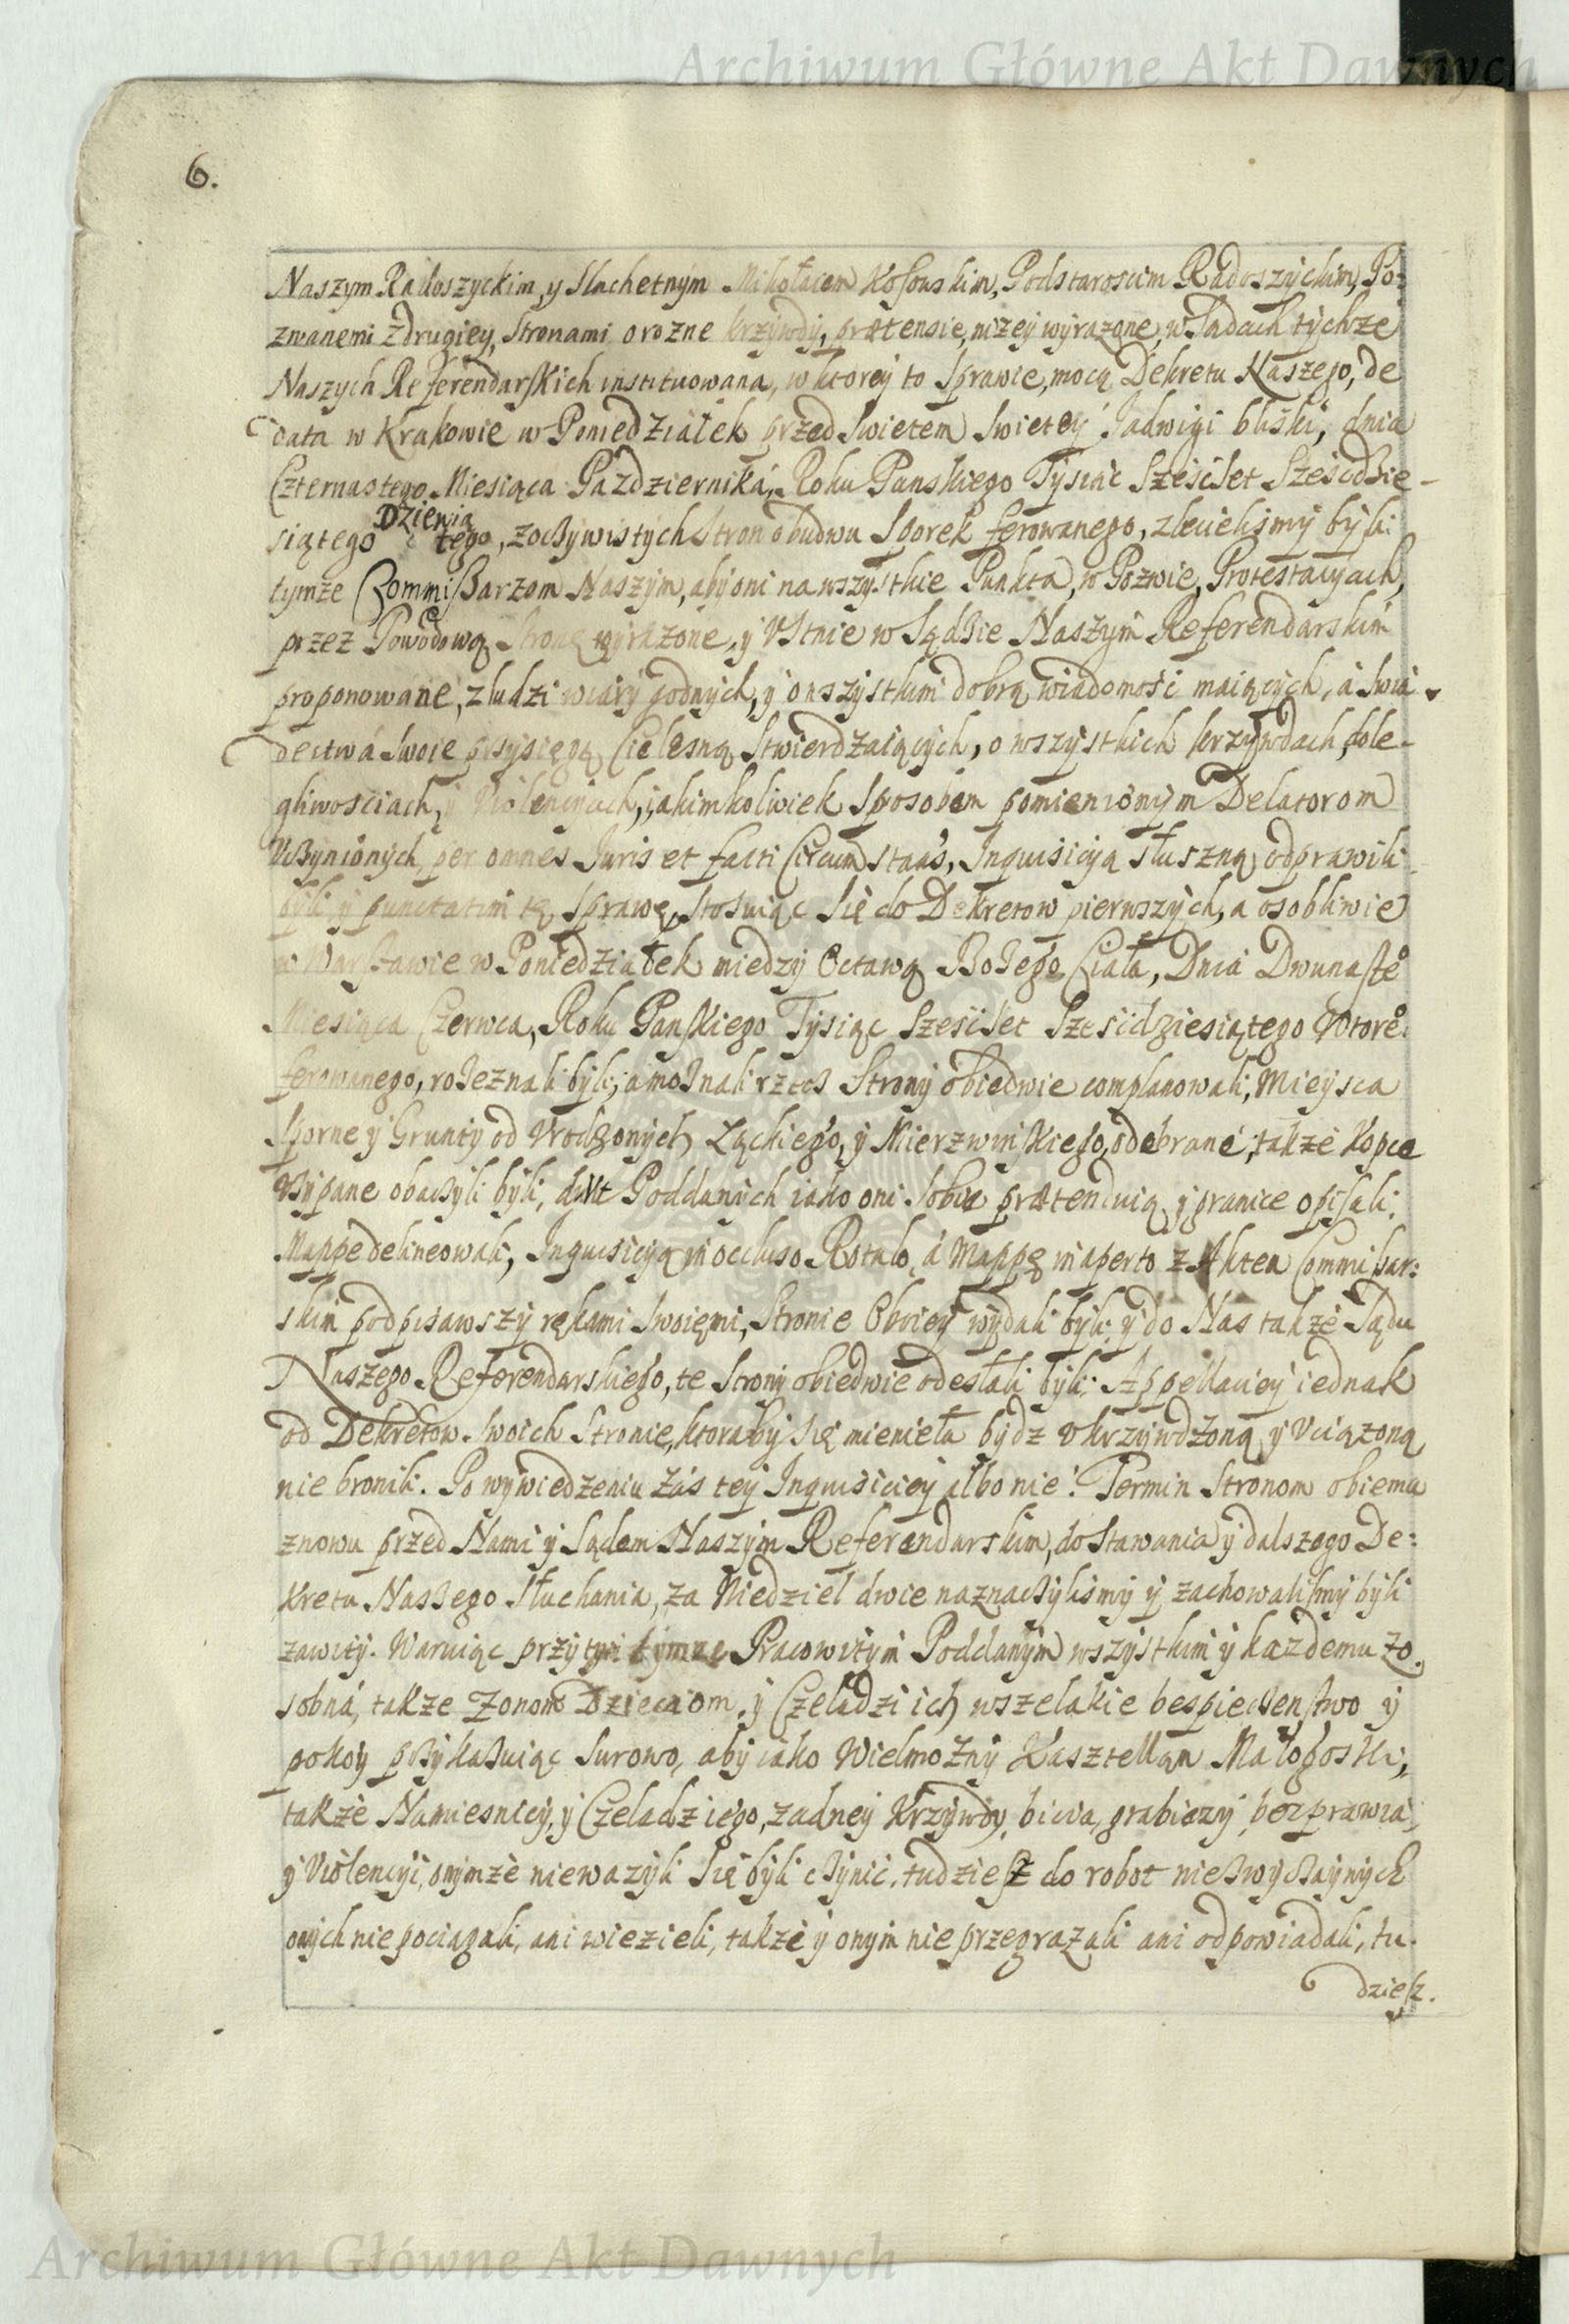 Archiwum Główne Akt Dawnych
6.
Naszym Radoszyckim, y Slachetnym Mikołaiem Kosowskim, Podstaroscim Radoszyckim, Po:
zwanemi z drugiey, Stronami, o rozne krzywdy, prætensie, nizey wyrazone, w Sądach tychze
Naszych Referendarskich instituowana, w ktorey to Sprawie, mocą Dekretu Naszego, de
data w Krakowie w Poniedziałek przed Swietem Swietey Jadwigi bliski, dnia
Czternastego Miesiąca Pazdziernika, Roku Panskiego Tysiąc Szescset Szescdzie-
siątego Dziewiątego, z oczywistych Stron obudwu Sporek ferowanego, zleciełismy byli
tymze Commissarzom Naszym, aby oni na wszystkie Punkta, w Pozwie, Protestacyach,
przez Powodową Stronę wyrazone, y Ustnie w Sądzie Naszym Referendarskim
proponowane, z ludzi wiary godnych, y o wszystkim dobrą wiadomosc maiących, a swia-
dectwa swoie przysięgą Cielesną Stwierdzaiących, o wszystkich krzywdach, dole-
gliwosciach, y Violencyach, iakimkolwiek Sposobem pomienionym Delatorom
Uczynionych, per omnes Juris et facti Circumstan's, Inquisicyą słuszną odprawili
byli, y punctatim tę Sprawę, Stosuiąc się do Dekretow pierwszych, a osobliwie
w Warszawie w Poniedziałek miedzy Octawą Bozego Ciała, Dnia Dwunaste°
Miesiąca Czerwca, Roku Panskiego Tysiąc Szescset Szescdziesiątego Wtore°
ferowanego, rozeznali byli, a moznali rzecz Strony obiedwie complanowali, Mieysca
Sporne y Grunty od Urodzonych Łąckiego, y Mierzwinskiego, odebrane, także Kopce
Usypane obaczyli byli, Poddanych iako oni sobie prætenduią y granice opisali,
Mappę delineowali, Inquisicyą in occluso Rotulo, a Mappę in aperto z Aktem Commissar:
skim podpisawszy rękami swoięmi, Stronie Oboiey wydali byli, y do Nas także Sądu
Naszego Referendarskiego, te Strony obiedwie odesłali byli. Appellaciey iednak
od Dekretow swoich Stronie, ktoraby się mieniela bydz ukrzywdzoną y Uciązoną
nie bronili. Po wywiedzeniu zas tey Inquisiciey albo nie. Termin Stronom obiema
znowu przed Nami y Sądem Naszym Referendarskim, do Stawania y dalszego De:
kretu Naszego słuchania, za Niedziel dwie naznaczylismy y zachowalismy byli
zawity. Waruiąc przytym tymze Pracowitym Poddanym wszystkim y kazdemu zo-
sobna, takze Zonom Dzieciom, y Czeladzi ich wszelakie bespieczenstwo y
pokoy przykazuiąc surowo, aby iako Wielmozny Kasztellan Małogoski,
także Namiesnicy, y Czeladz iego, zadney Krzywdy, bicia, grabiezy, bezprawia,
y Violencyi, onymze niewazyli się byli czynic, tudziesz do robot niezwyczaynych
onych nie pociągali, ani wiezieli, także y onym nie przegrazali ani odpowiadali, tu-
dziesz.
Archiwum Główne Akt Dawnych